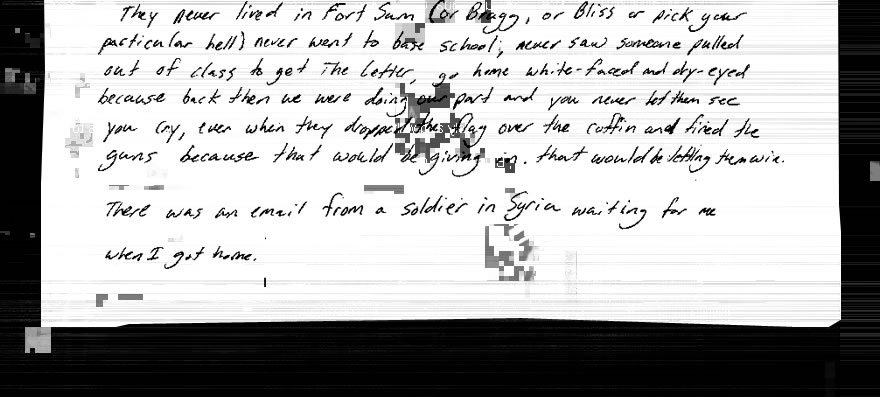 They never lived in Fort Sam (or Bragg, or Bliss or pick your
particular hell) never went to base school, never saw someone pulled
out of class to get The Letter, go home white-faced and dry-eyed
because back then we were doing our part and you never let them see
you cry, even when they dropped the flag over the coffin and fired the
guns because that would be giving in. that would be letting them win.
There was an email from a soldier in Syria waiting for me
when I got home.